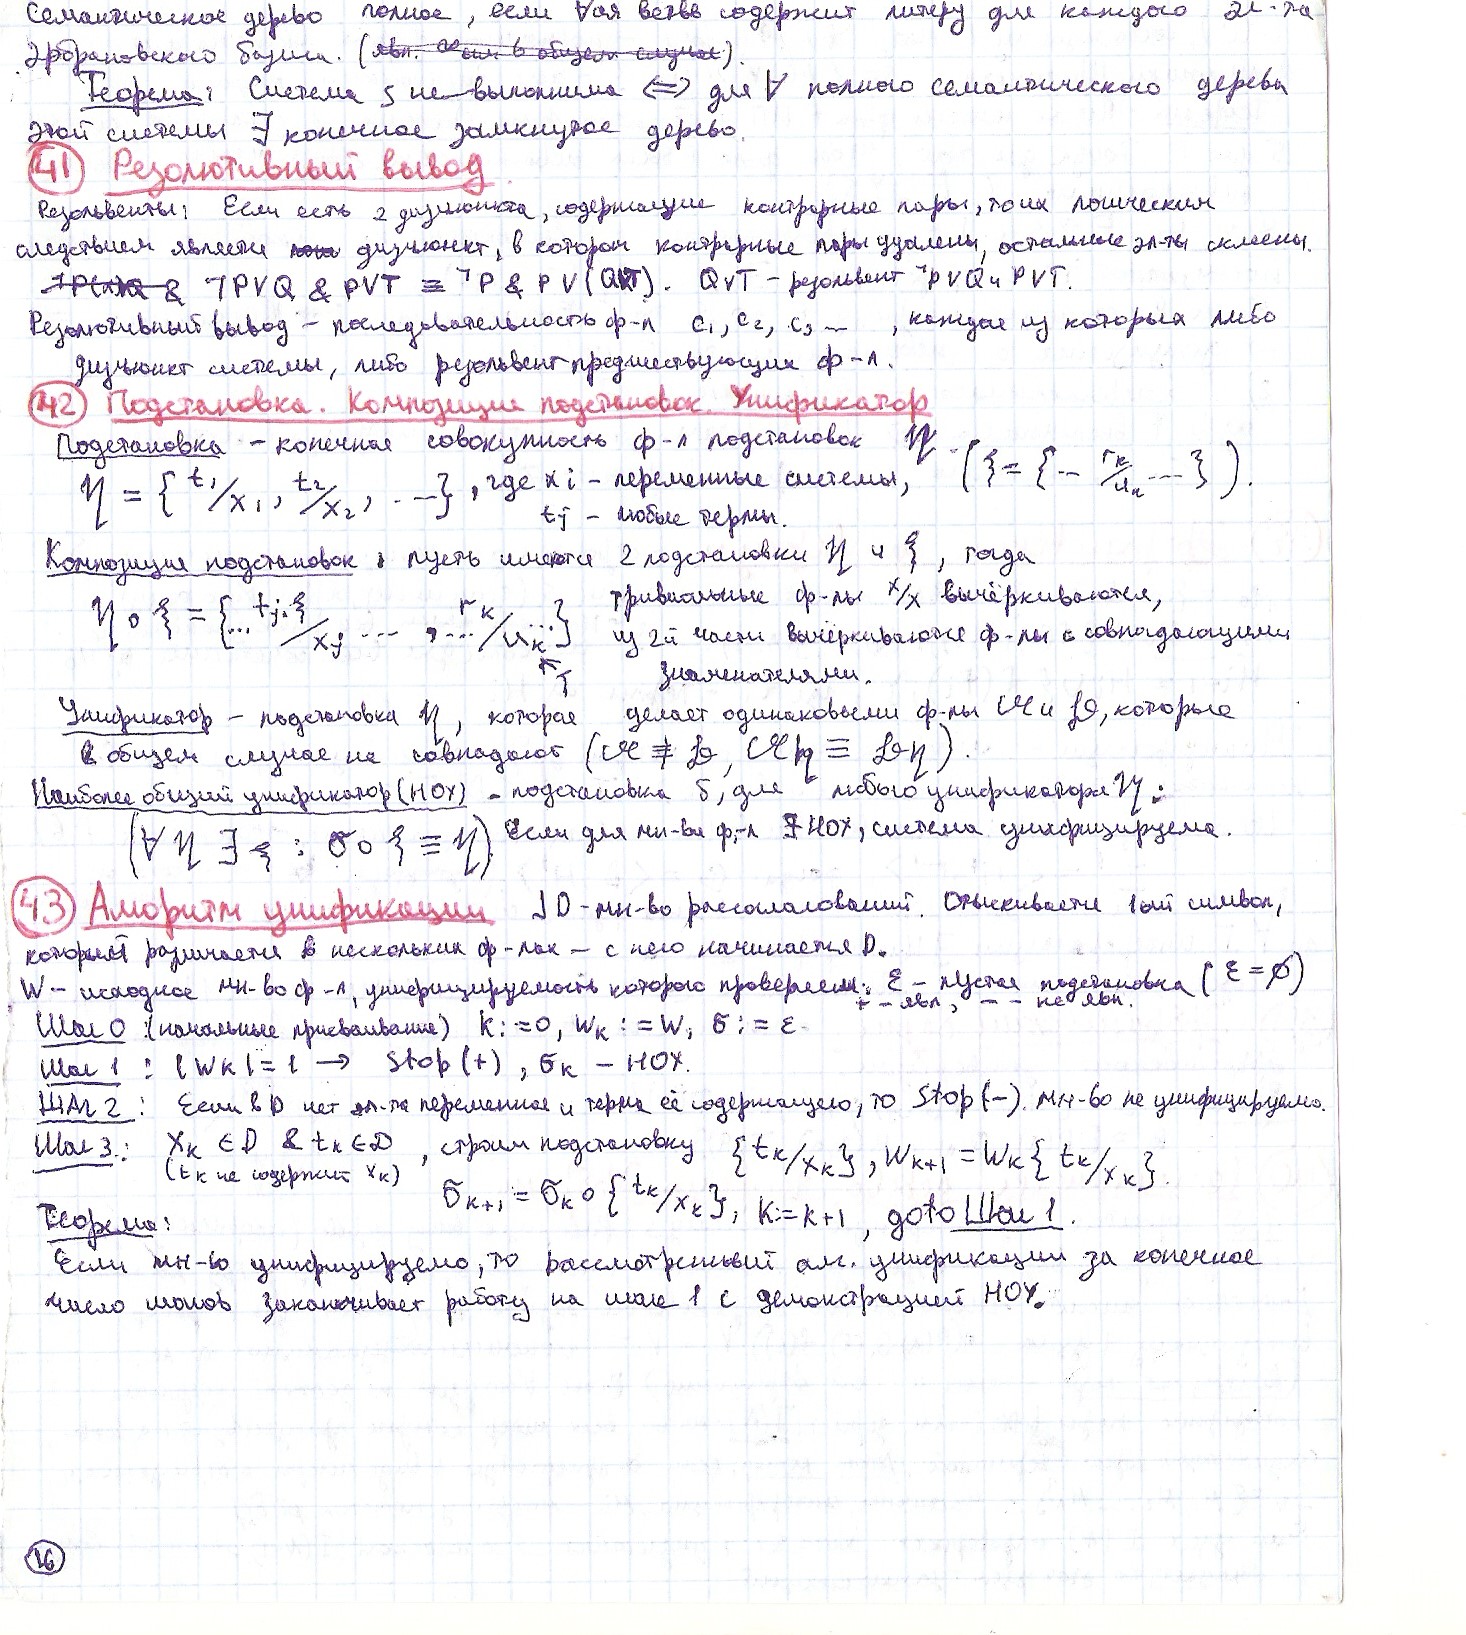 Семантическое дерево полное, если ∀ая ветвь содержит литеру для каждого эл-та
эрбрановского базиса. (явл. ∞ым в общем случае).
Теорема: Система S не выполнима ⇔ для ∀ полного семантического дерева
этой системы ∃ конечное замкнутое дерево.
41 Резолютивный вывод
Резольвенты: Если есть 2 дизъюнкта, содержащие контрарные пары, то их логическим
следствием является дизъюнкт, в котором контрарные пары удалены, остальные эл-ты склеены.
& ¬P∨Q & P∨T ≡ ¬P & P∨(Q∨T). Q∨T – резольвент ¬P∨Q и P∨T.
Резолютивный вывод – последовательность ф-л C₁, C₂, C₃ ..., каждая из которых либо
дизъюнкт системы, либо резольвент предшествующих ф-л.
42 Подстановка. Композиция подстановок. Унификатор
Подстановка – конечная совокупность ф-л подстановок η.
η = {t₁/x₁, t₂/x₂, ...}, где xi – переменные системы, (ξ = {... rk/uk ...}).
tj – любые термы.
Композиция подстановок: пусть имеются 2 подстановки η и ξ, тогда
η∘ξ = {... tj·ξ/xj ..., ... rk/uk ...} тривиальные ф-лы x/x вычёркиваются,
из 2й части вычёркиваются ф-лы с совпадающими
знаменателями.
Унификатор – подстановка η, которая делает одинаковыми ф-лы 𝔄 и 𝔅, которые
в общем случае не совпадают (𝔄 ≢ 𝔅, 𝔄η ≡ 𝔅η).
Наиболее общий унификатор (НОУ) – подстановка σ, для любого унификатора η:
(∀η ∃ξ : σ∘ξ ≡ η). Если для мн-ва ф-л ∃ НОУ, система унифицируема.
43 Алгоритм унификации ⅃ D – мн-во рассогласований. Отыскивается 1ый символ,
который различается в нескольких ф-лах – с него начинается D.
W – исходное мн-во ф-л, унифицируемость которого проверяем. ε – пустая подстановка (ε = ∅)
+ – явл, – – не явл.
Шаг 0: (начальные присваивания) k := 0, Wk := W, σ := ε.
Шаг 1: |Wk| = 1 → Stop (+), σk – НОУ.
ШАГ 2: Если в D нет эл-та переменная и терма её содержащего, то Stop (–). мн-во не унифицируемо.
Шаг 3: xk ∈ D & tk ∈ D, строим подстановку {tk/xk}, Wk+1 = Wk{tk/xk}.
(tk не содержит xk)
σk+1 = σk∘{tk/xk}, k := k+1, goto Шаг 1.
Теорема:
Если мн-во унифицируемо, то рассмотренный алг. унификации за конечное
число шагов заканчивает работу на шаге 1 с демонстрацией НОУ.
16